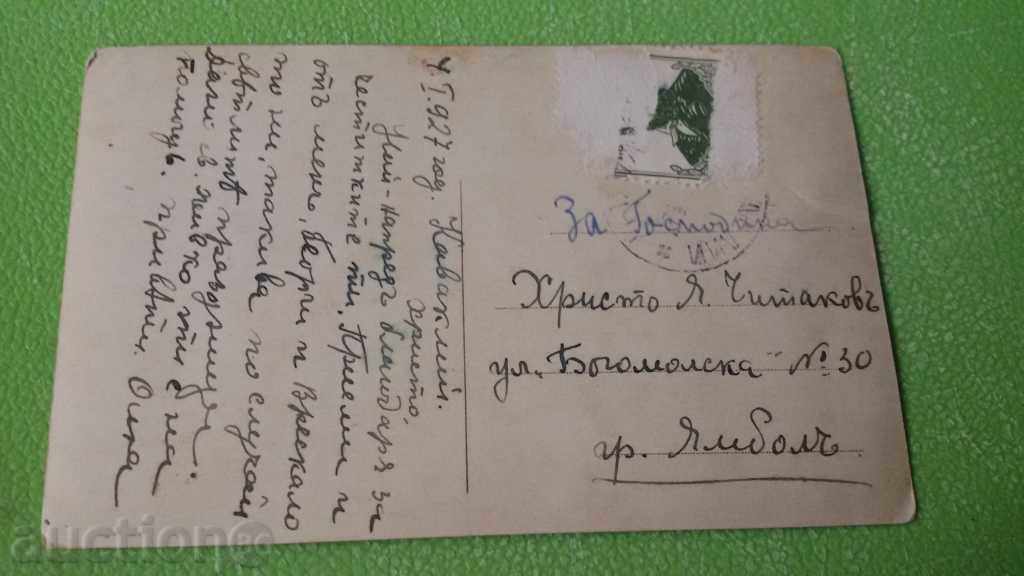 4.I.927 год. Кавакли.
Христо,
Най-напредъ благодаря за
честитките ти. Приеми и
отъ мене, Георги и Врескало
то ни, такива по случай
светлитѣ празници.
Дано св. Янко ти б на
помощь. Привѣти. Онка
За Господина
Христо Я. Читаковъ
ул. Богомолска № 30
гр. Ямболъ
auction